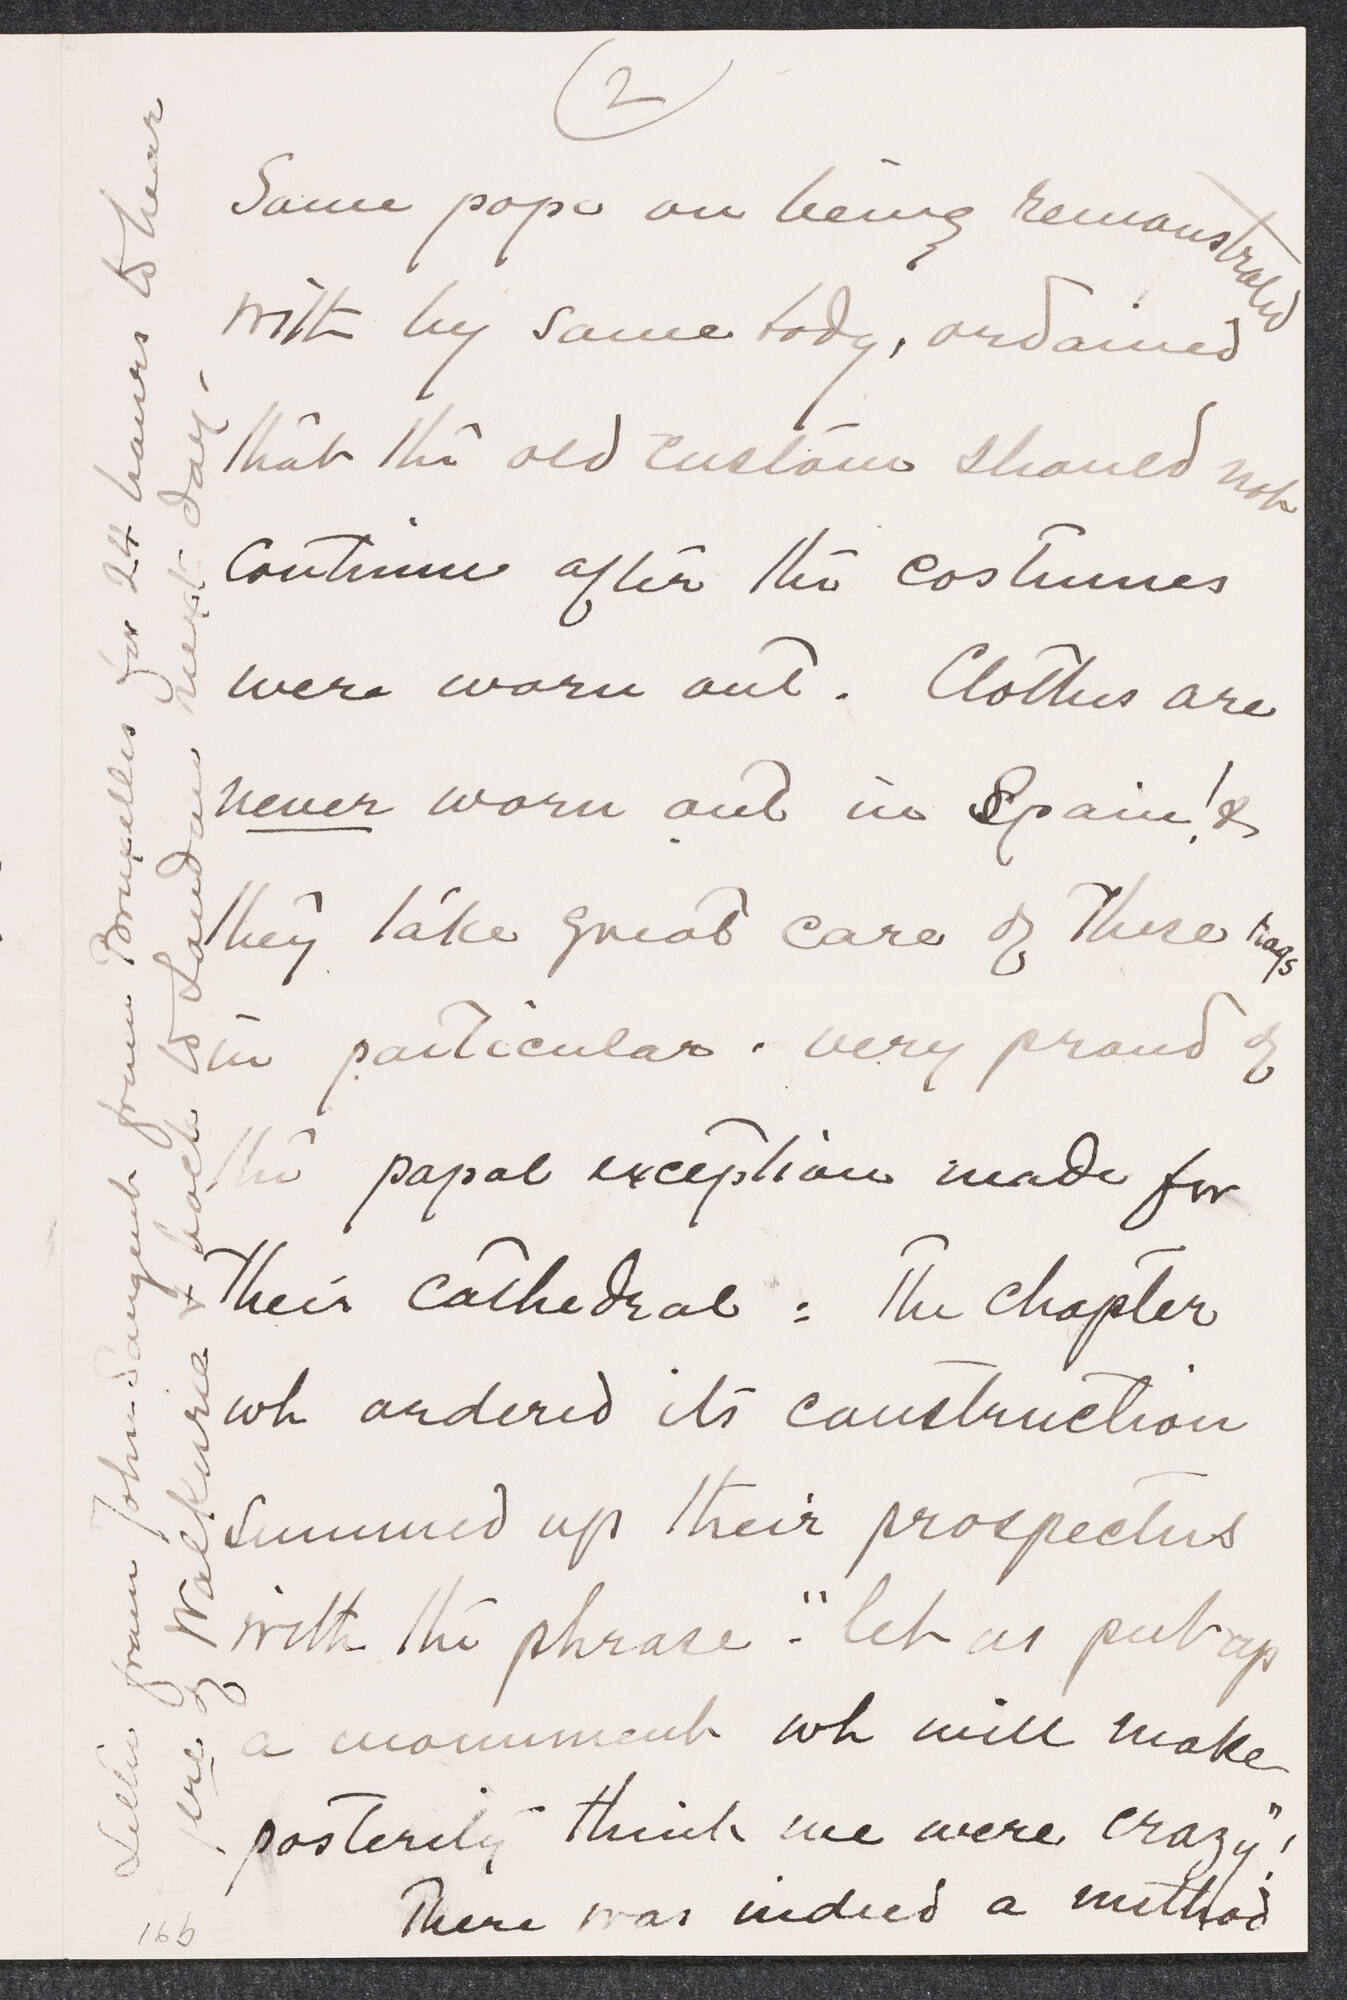 (2)
Some pope on being remonstrated
with by some body, ordained
that the old custom should not
continue after the costumes
were worn out. Clothes are
never worn out in Spain! &
they take great care of these rags
in particular. very proud of
the papal exception made for
their cathedral : The chapter
wh ordered its construction
summed up their prospectus
with the phrase - "let us put up
a monument wh will make
posterity think we were crazy"!
There was indeed a method
Letter from John Sargent from Bruxelles for 24 hours to hear
pre of Walkurie & back to London next day -
166